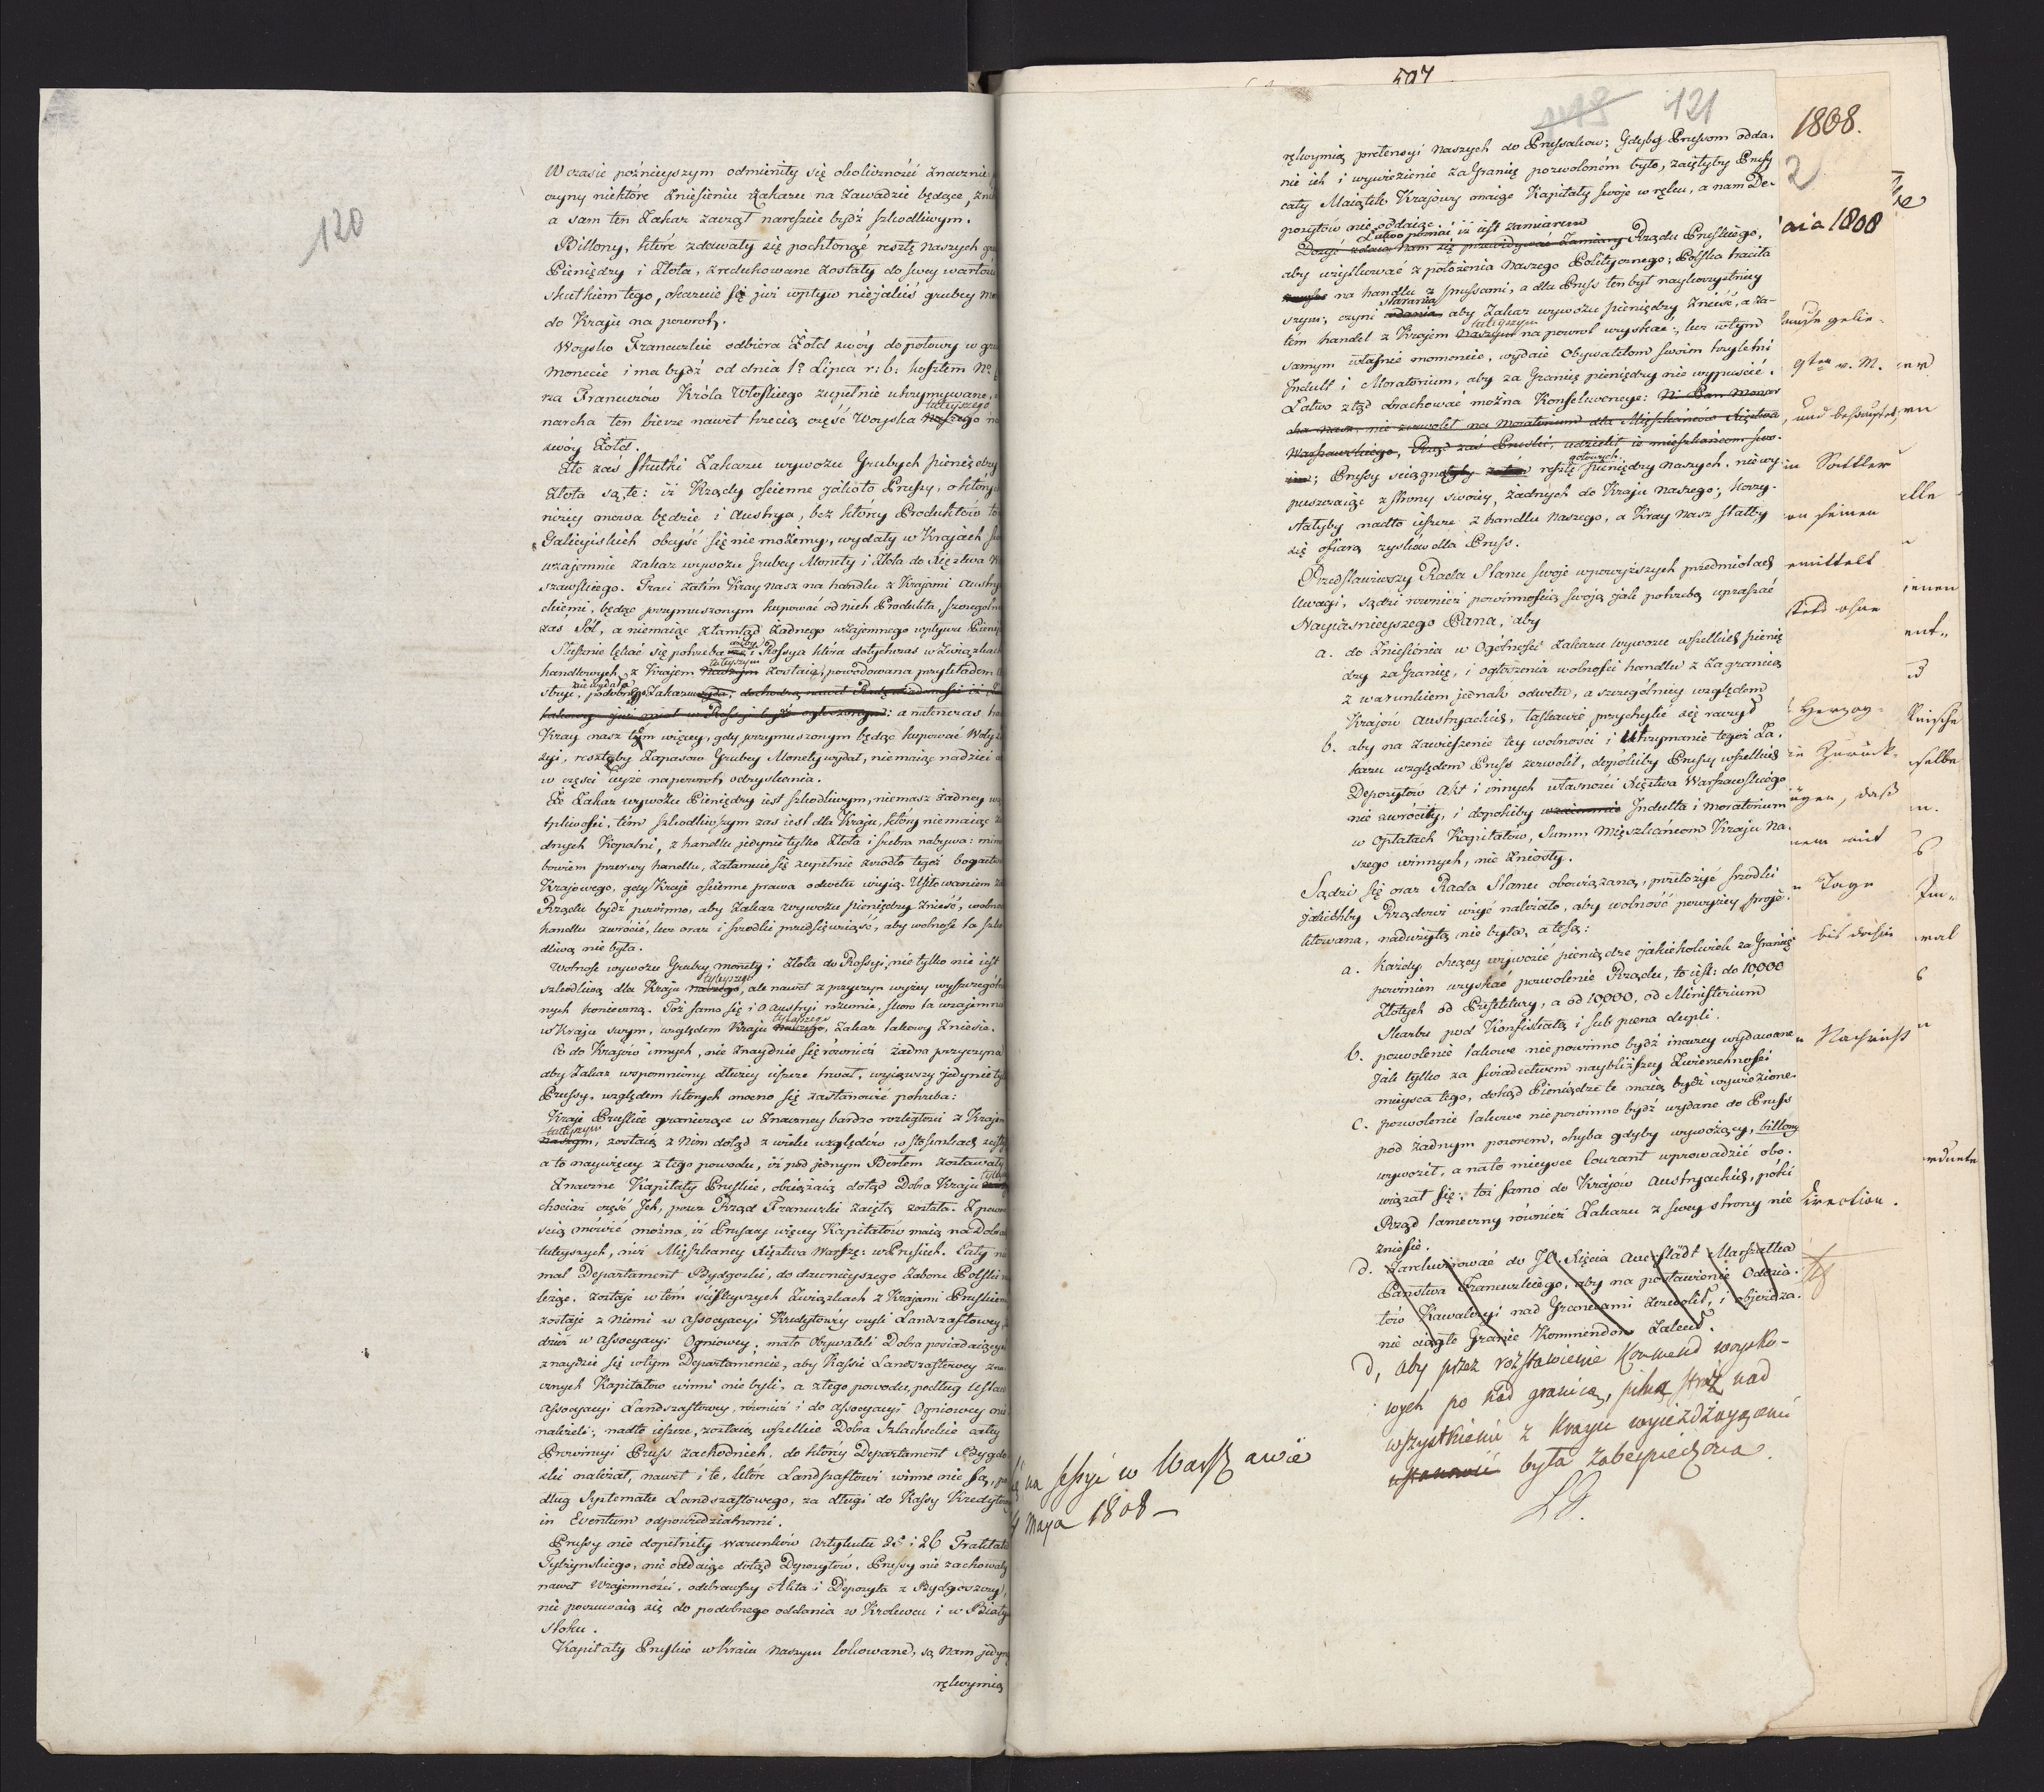 120
W czasie poźnieyszym odmieniły się okoliczności znacznie
czyny niektóre zniesieniu zakazu na zawadzie będące,
a sam ten Zakaz zaczął nareszcie bydź szkodliwym.
Billony, które zdawały się pochłonąć resztę naszych
Pieniędzy i Złota, zredukowane zostały do swey wartości
skutkiem tego, okazuie się już wpływ niejakiś grubey
do Kraju na powrot.
Woysko Francuzkie odbiera Żołd swóy do połowy w
Monecie i ma bydź od dnia 1º Lipca r: b: kosztem
rza Francuzów Króla Włoskiego zupełnie utrzymywane,
tuteyszego
narcha ten bierze nawet trzecią część Woyska naszego
swóy Żołd.
Złe zaś skutki Zakazu wywozu Grubych pieniędzy
Złota są te: iż Rządy ościenne jakoto Prussy, o których
niżey mowa będzie i Austrya, bez którey Produktów
Galicyiskich obeyść się nie możemy, wydały w Krajach
wzajemnie zakaz wywozu Grubey Monety i Złota do Xięztwa
szawskiego. Traci zatém Kray nasz na handlu z Krajami
ckiemi, będąc przymuszonym kupować od nich Produkta, szczegolnie
zaś Sól, a niemaiąc ztamtąd żadnego wzajemnego wpływu
Słusznie lękać się potrzeba ażeby i Rossya która dotychczas w związkach
tuteyszym
handlowych z Krajem naszym zostaiąc, powodowana przykładem
nie wydała
stryi, podobnego Zakazu
: a natenczas
Kray nasz tém więcey, gdy przymuszonym będąc kupować Woły z
syi, resztęby Zapasów Grubey Monety wydał, niemaiąc nadziei
w części iéyże napowrot odzyskania.
Że Zakaz wywozu Pieniędzy iest szkodliwym, niemasz żadney
tpliwości, tém szkodliwszym zaś iest dla Kraju, który niemaiąc
dnych Kopalni, z handlu jedynie tylko Złota i srebra nabywa:
bowiem przerwy handlu, zatamuie się zupełnie zrzódło tegoż bogactwa
Krajowego, gdy Kraje ościenne prawa odwetu użyią. Usiłowaniem
Rządu bydź powinno, aby Zakaz wywozu pieniędzy znieść,
handlu zwrócić, lecz oraz i srzodki przedsięwziąść, aby wolność ta
dliwą nie była.
Wolność wywozu Grubey monety i Złota do Rossyi, nie tylko nie iest
tuteyszego
szkodliwą dla Kraju naszego, ale nawet z przyczyn wyżey
nych konieczną. Toż samo się i o Austryi rozumie, skoro ta wzajemnie
tuteyszego
w Kraju swym, względem Kraju naszego, Zakaz takowy zniesie.
Co do Krajów innych, nie znaydzie się również żadna przyczyna
aby Zakaz wspomniony dłużey ieszcze trwał, wyiąwszy jedynie
Prussy, względem których mocno się zastanowić potrzeba:
Kraje Pruskie graniczące w znaczney bardzo rozległości z Krajem
tuteyszym
naszym, zostaią z nim dotąd z wielu względów w stosunkach
a to naywięcey z tego powodu, iż pod jednym Berłem zostawały
Znaczne Kapitały Pruskie, obciążaią dotąd Dobra Kraju
chociaż część Jch, przez Rząd Francuzki zaiętą została.
ścią mówić można, iż Prusacy więcey Kapitałów maią na Dobrach
tuteyszych, niż Mieszkańcy Xięztwa w Pruskich. Cały
mal Departament Bydgoski, do dawnieyszego Zaboru Polski
leżąc, zostaje w tém ściśleyszych związkach z Krajami Pruskiemi
zostaje z niemi w Assocyacyi Kredytowey czyli Landszaftowey,
dzież w Assocyacyi Ogniowey; mało Obywateli Dobra posiadaiących
znaydzie się w tym Departamencie, aby Kassie Landszaftowey
cznych Kapitałow winni nie byli, a z tego powodu, podług Ustaw
Assocyacyi Landszaftowey, również i do Assocyacyi Ogniowey
należeli; nadto ieszcze, zostaią wszelkie Dobra Szlacheckie całey
Prowincyi Pruss zachodnich, do którey Departament
ski należał, nawet i te, które Landszaftowi winne nie są,
dług Systematu Landszaftowego, za długi do Kassy
in Eventum odpowiedzialnemi.
Prussy nie dopełniły warunków Artykułu 25 i 26 Traktatu
Tylżynskiego, nie oddaiąc dotąd Depozytów. Prussy nie zachowały
nawet Wzajemności, odebrawszy Akta i Depozyta z Bydgoszczy,
nie poczuwaią się do podobnego oddania w Krolewcu i w
stoku.
Kapitały Pruskie w Kraiu Naszym lokowane, są Nam
rękoymią
507
121
rękoymią pretensyi Naszych do Prussakow; Gdyby Prussom odda-
nie ich i wywiezienie za Granicę pozwoloném było, zaiętyby Prussy
cały Maiątek Krajowy maiąc Kapitały swoje w ręku, a nam De-
pozytów nie oddaiąc
Łatwo poznać iż iest zamiarem
Rządu Pruskiego,
aby użytkować z położenia Naszego Politycznego; Polska traciła
na handlu z Prussami, a dla Pruss ten był naykorzystniey
starania
szym; czyni żądania, aby Zakaz wywozu pieniędzy znieść, a za-
tuteyszym
tém handel z Krajem naszym na powrot uzyskać; lecz w tym
samym właśnie momencie, wydaie Obywatelom swoim trzyletni
Jndult i Moratorium, aby za Granicę pieniędzy nie wypuścić.
Łatwo ztąd obrachować można Konsekwencye: Ni Pan Monar
cha nasz, nie zezwolił na Moratorium dla Mieszkańców Xięztwa
Warszawskiego, Rząd zaś Pruski, udzielił ie mieszkańcom swo-
gotowych
im; Prussy ściągnęłyby resztę pieniędzy naszych, nie wy
puszczaiąc z strony swoiey, żadnych do Kraju naszego; korzy-
stałyby nadto ieszcze z handlu Naszego, a Kray Nasz stałby
się ofiarą zysków dla Pruss.
Przedstawiwszy Rada Stanu swoje w powyższych przedmiotach
Uwagi, sądzi również powinnością swoją jak potrzebą upraszać
Nayiaśnieyszego Pana, aby
a. do zniesienia w Ogólności Zakazu wywozu wszelkich pienię
dzy za Granicę, i ogłoszenia wolności handlu z Zagranicą
z warunkiem jednak odwetu, a szczególniey względem
Krajow Austryackich, łaskawie przychylić się raczył
b. aby na zawieszenie tey wolności i Utrzymanie tegoż Za-
kazu względem Pruss zezwolił, dopókiby Prussy wszelkich
Depozytów Akt i innych własności Xięztwa Warszawskiego
nie zwróciły, i dopokiby wzaiemnie Jndultu i Moratorium
w Opłatach Kapitałów, Summ Mieszkańcom Kraju Na-
szego winnych, nie zniosły.
Sądzi się oraz Rada Stanu obowiązaną, przełożyć srzodki
jakichby Rządowi użyć należało, aby wolność powyżey proje-
ktowana, nadużytą nie była, a te są:
a. Każdy chcący wywozić pieniądze jakiekolwiek za Granicę
powinien uzyskać pozwolenie Rządu, to iest: do 10,000
Złotych od Prefektury, a od 10,000, od Ministerium
Skarbu pod Konfiskatą i sub poena dupli.
b. pozwolenie takowe nie powinno bydź inaczey wydawane
jak tylko za świadectwem naybliższey Zwierzchności
mieysca tego, dokąd Pieniądze te maią bydź wywiezione.
c. pozwolenie takowe nie powinno bydź wydane do Pruss
pod żadnym pozorem, chyba gdyby wywożący, billony
wywoził, a na to mieysce Courant wprowadzić obo-
wiązał się; toż samo do Krajów Austryackich, póki
Rząd tameczny również Zakazu z swey strony nie
zniesie.
d. Zarekwirować do JO. Xięcia Auerstädt Marszałka
Państwa Francuzkiego, aby na postawienie Oddzia-
łów Kawaleryi nad Granicami zezwolił, i objeżdża-
nie ciągłe Granic Kommendom zalecił.
d, aby przez rozstawienie Kommend woysko-
wych po nad granicą, pilna straż nad
wszystkiemi z kraju wyieżdżaiącemi
ustanowić była zabezpieczona.
na sessyi w Warszawie
Maya 1808 –
1808.
2
aia 1808
9ten v. M.
und behauptet,
in Sattler
emittelt
Herzog-
in Zurück-
n Tage
bis dahin
n Nachricht
direction.